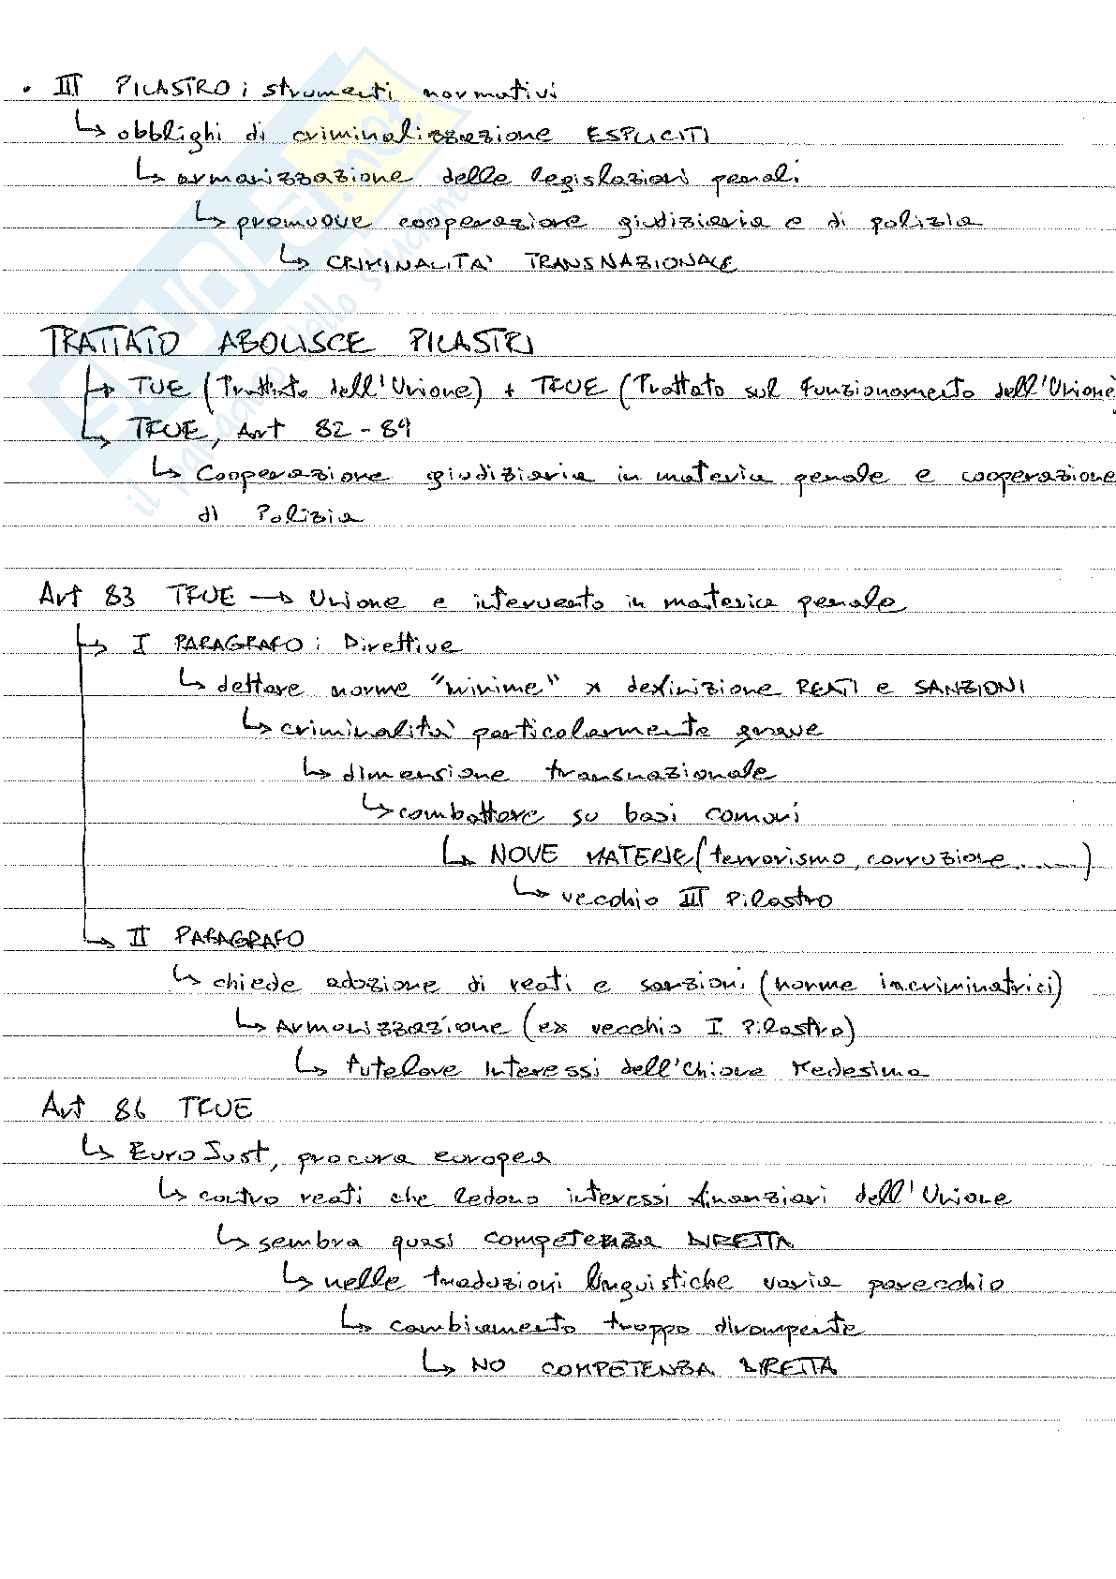 • III PILASTRO: strumenti normativi
↳ obblighi di criminalizzazione ESPLICITI
↳ armonizzazione delle legislazioni penali
↳ promuove cooperazione giudiziaria e di polizia
↳ CRIMINALITA' TRANSNAZIONALE
TRATTATO ABOLISCE PILASTRI
↳ TUE (Trattato dell'Unione) + TFUE (Trattato sul Funzionamento dell'Unione)
↳ TFUE, Art 82-89
↳ Cooperazione giudiziaria in materia penale e cooperazione
di Polizia
Art 83 TFUE → Unione e intervento in materia penale
↳ I PARAGRAFO: Direttive
↳ dettare norme "minime" x definizione REATI e SANZIONI
↳ criminalità particolarmente grave
↳ dimensione transnazionale
↳ combattere su basi comuni
↳ NOVE MATERIE (terrorismo, corruzione......)
↳ vecchio III Pilastro
↳ II PARAGRAFO
↳ chiede adozione di reati e sanzioni (norme incriminatrici)
↳ Armonizzazione (ex vecchio I Pilastro)
↳ Tutelare Interessi dell'Unione Medesima
Art 86 TFUE
↳ EuroJust, procura europea
↳ contro reati che ledono interessi finanziari dell'Unione
↳ sembra quasi competenza DIRETTA
↳ nelle traduzioni linguistiche varia parecchio
↳ cambiamento troppo dirompente
↳ NO COMPETENZA DIRETTA
SKUOLA.not
il paradiso dello studente